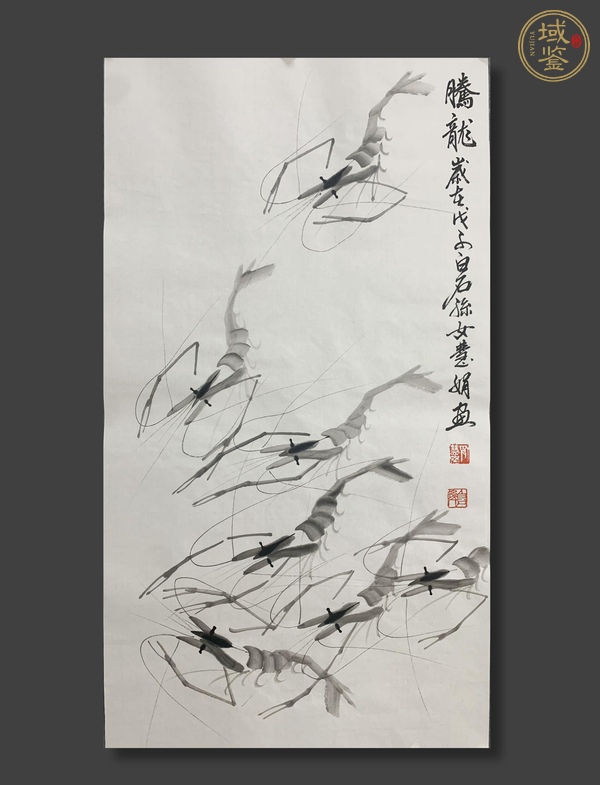 騰龍
歲在戊子白石孫女慧娟畫
域鉴
YUJIAN